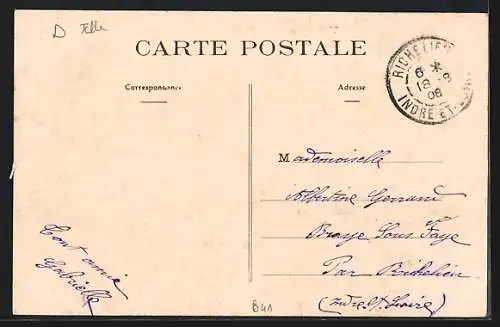 D
CARTE POSTALE
Correspondance
Adresse
RICHELIEU
6 *
18 -9
08
INDRE-ET-
Mademoiselle
Albertine Gerrand
Braye Sous Faye
Par Richelieu
(Indre & Loire)
Ton amie
Gabrielle
B41